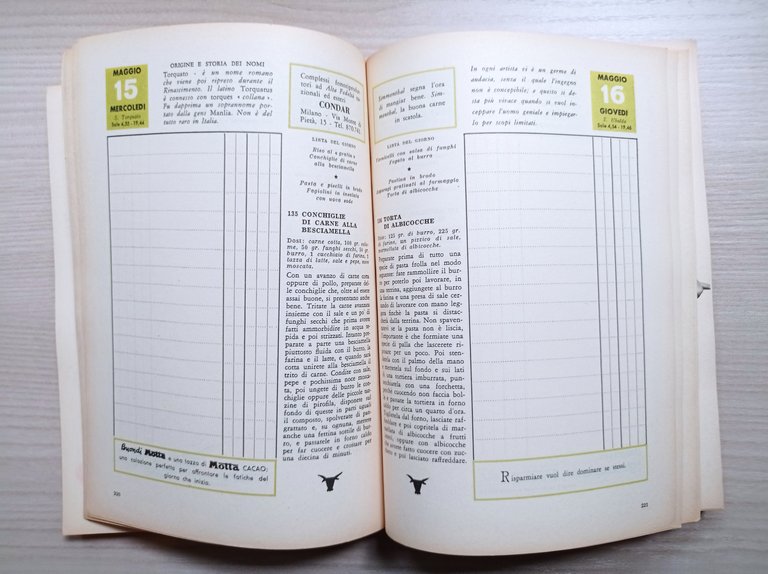 MAGGIO
15
MERCOLEDÌ
S. Torquato
Sole 4,55 - 19,46
ORIGINE E STORIA DEI NOMI
Torquato - è un nome romano
che viene poi ripreso durante il
Rinascimento. Il latino Torquatus
è connesso con torques « collana ».
Fu dapprima un soprannome portato
dalla gens Manlia. Non è del
tutto raro in Italia.
Complessi fonoriproduttori
ad Alta Fedeltà nazionali
ed esteri
CONDAR
Milano - Via Monte di
Pietà, 15 - Tel.
LISTA DEL GIORNO
Riso al « gratin »
Conchiglie di carne
alla besciamella
Pasta e piselli in brodo
Fagiolini in insalata
con uova sode
135 CONCHIGLIE
DI CARNE ALLA
BESCIAMELLA
Dosi: carne cotta, 100 gr. salume,
50 gr. funghi secchi, 50 gr.
burro, 1 cucchiaio di farina, 1
tazza di latte, sale e pepe, noce
moscata.
Con un avanzo di carne cotta
oppure di pollo, preparate delle
conchiglie che, oltre ad essere
assai buone, si presentano anche
bene. Tritate la carne avanzata
insieme con il sale e un po' di
funghi secchi che prima avrete
fatti ammorbidire in acqua tepida
e poi strizzati. Intanto preparate
a parte una besciamella
piuttosto fluida con il burro, la
farina e il latte, e quando sarà
cotta unirete alla besciamella il
trito di carne. Condite con sale,
pepe e pochissima noce moscata,
poi ungete di burro le conchiglie
oppure delle piccole tazzine
di pirofila, disponete sul
fondo di queste in parti uguali
il composto, spolverate di pangrattato
e, su ognuna, mettete
anche una fettina sottile di burro,
e passatele in forno caldo
per far cuocere e crostare per
una diecina di minuti.
Buondì Motta e una tazza di Motta CACAO:
una colazione perfetta per affrontare le fatiche del
giorno che inizia.
220
Simmenthal segna l'ora
di mangiar bene. Simmenthal,
la buona carne
in scatola.
LISTA DEL GIORNO
Vermicelli con salsa di funghi
Fegato al burro
Pastina in brodo
Asparagi gratinati al formaggio
Torta di albicocche
136 TORTA
DI ALBICOCCHE
Dosi: 125 gr. di burro, 225 gr.
di farina, un pizzico di sale,
marmellata di albicocche.
Preparate prima di tutto una
specie di pasta frolla nel modo
seguente: fate rammollire il burro
per poterlo poi lavorare, in
una terrina, aggiungete al burro
la farina e una presa di sale cercando
di lavorare con mano leggera
finchè la pasta si distaccherà
dalla terrina. Non spaventatevi
se la pasta non è liscia,
l'importante è che formiate una
specie di palla che lascerete riposare
per un poco. Poi stendetela
con il palmo della mano
e mettetela sul fondo e sui lati
di una tortiera imburrata, punzecchiatela
con una forchetta,
perchè cuocendo non faccia bolle
e passate la tortiera in forno
caldo per circa un quarto d'ora.
Toglietela dal forno, lasciate raffreddare
e poi copritela di marmellata
di albicocche a frutti
interi, oppure con albicocche
che avrete fatte cuocere con zucchero
e poi lasciato raffreddare.
In ogni artista vi è un germe di
audacia, senza il quale l'ingegno
non è concepibile; e questo si desta
più vivace quando si vuol inceppare
l'uomo geniale e impiegarlo
per scopi limitati.
MAGGIO
16
GIOVEDÌ
S. Ubaldo
Sole 4,54 - 19,48
Risparmiare vuol dire dominare se stessi.
221